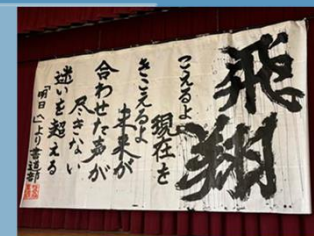 飛翔
こえるよ
現在を
きこえるよ
未来が
合わせた声が
尽きない
迷いを超える
「明日へ」より 書道部